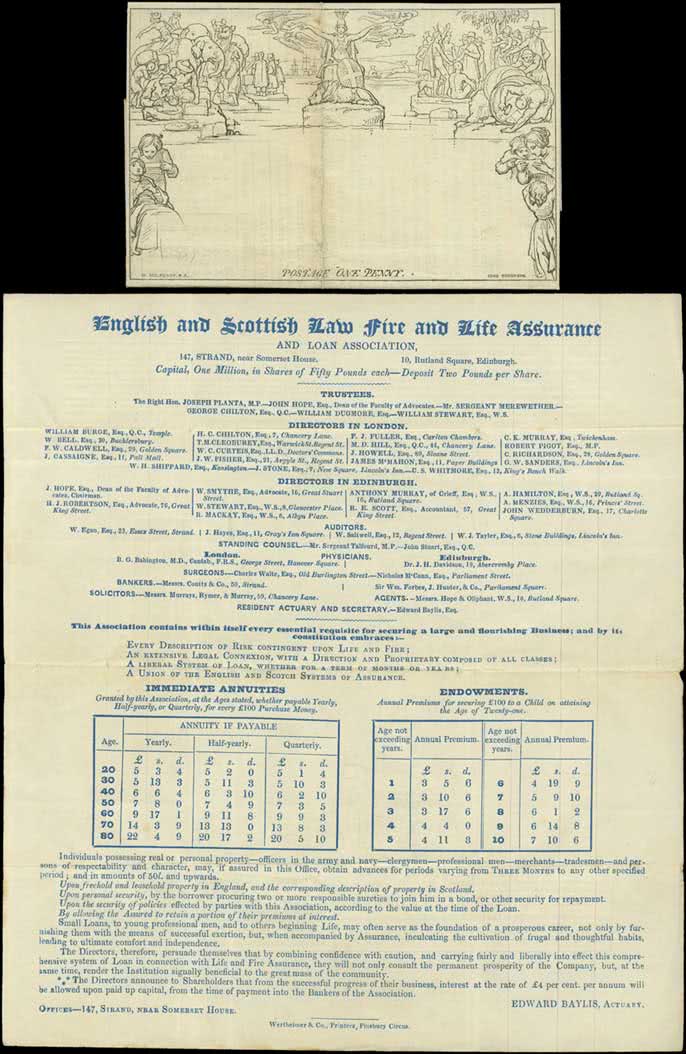 W. MULREADY, R.A.
POSTAGE ONE PENNY.
JOHN THOMPSON.
English and Scottish Law Fire and Life Assurance
AND LOAN ASSOCIATION,
147, STRAND, near Somerset House. 10, Rutland Square, Edinburgh.
Capital, One Million, in Shares of Fifty Pounds each—Deposit Two Pounds per Share.
TRUSTEES.
The Right Hon. JOSEPH PLANTA, M.P.—JOHN HOPE, Esq., Dean of the Faculty of Advocates.—Mr. SERGEANT MEREWETHER.—
GEORGE CHILTON, Esq., Q.C.—WILLIAM DUGMORE, Esq.—WILLIAM STEWART, Esq., W.S.
DIRECTORS IN LONDON.
WILLIAM BURGE, Esq., Q.C., Temple.
W. BELL, Esq., 20, Bucklersbury.
F. W. CALDWELL, Esq., 29, Golden Square.
J. CASSAIGNE, Esq., 11, Pall Mall.
H. C. CHILTON, Esq., 7, Chancery Lane.
T.M.CLEOBUREY, Esq., Warwick St. Regent St.
W. C. CURTEIS, Esq., LL.D., Doctors' Commons.
J. W. FISHER, Esq., 21, Argyle St., Regent St.
F. J. FULLER, Esq., Carlton Chambers.
M. D. HILL, Esq., Q.C., 44, Chancery Lane.
J. HOWELL, Esq., 89, Sloane Street.
JAMES M'MAHON, Esq., 11, Paper Buildings
C. K. MURRAY, Esq., Twickenham.
ROBERT PIGOT, Esq., M.P.
C. RICHARDSON, Esq., 28, Golden Square.
G. W. SANDERS, Esq., Lincoln's Inn.
W. H. SHIPPARD, Esq., Kensington.—J. STONE, Esq., 7, New Square, Lincoln's Inn.—C. S. WHITMORE, Esq., 12, King's Bench Walk.
DIRECTORS IN EDINBURGH.
J. HOPE, Esq., Dean of the Faculty of Advocates, Chairman.
H. J. ROBERTSON, Esq., Advocate, 76, Great King Street.
W. SMYTHE, Esq., Advocate, 16, Great Stuart Street.
W. STEWART, Esq., W.S., 8, Gloucester Place.
R. MACKAY, Esq., W.S., 6, Albyn Place.
ANTHONY MURRAY, of Crieff, Esq., W.S., 16, Rutland Square.
R. E. SCOTT, Esq., Accountant, 57, Great King Street.
A. HAMILTON, Esq., W.S., 29, Rutland Sq.
A. MENZIES, Esq., W.S., 16, Princes' Street.
JOHN WEDDERBURN, Esq., 17, Charlotte Square.
AUDITORS.
W. Egan, Esq., 23, Essex Street, Strand. | J. Hayes, Esq., 11, Gray's Inn Square. | W. Saltwell, Esq., 12, Regent Street. | W. J. Tayler, Esq., 6, Stone Buildings, Lincoln's Inn.
STANDING COUNSEL.—Mr. Sergeant Talfourd, M.P.—John Stuart, Esq., Q.C.
London. PHYSICIANS. Edinburgh.
B. G. Babington, M.D., Cantab., F.R.S., George Street, Hanover Square. | Dr. J. H. Davidson, 19, Abercromby Place.
SURGEONS—Charles Waite, Esq., Old Burlington Street.—Nicholas M'Cann, Esq., Parliament Street.
BANKERS.—Messrs. Coutts & Co., 59, Strand. | Sir Wm. Forbes, J. Hunter, & Co., Parliament Square.
SOLICITORS—Messrs. Murrays, Rymer, & Murray, 59, Chancery Lane. AGENTS.—Messrs. Hope & Oliphant, W.S., 10, Rutland Square.
RESIDENT ACTUARY AND SECRETARY.—Edward Baylis, Esq.
This Association contains within itself every essential requisite for securing a large and flourishing Business; and by its
constitution embraces:—
EVERY DESCRIPTION OF RISK CONTINGENT UPON LIFE AND FIRE;
AN EXTENSIVE LEGAL CONNEXION, WITH A DIRECTION AND PROPRIETARY COMPOSED OF ALL CLASSES;
A LIBERAL SYSTEM OF LOAN, WHETHER FOR A TERM OF MONTHS OR YEARS;
A UNION OF THE ENGLISH AND SCOTCH SYSTEMS OF ASSURANCE.
IMMEDIATE ANNUITIES
Granted by this Association, at the Ages stated, whether payable Yearly,
Half-yearly, or Quarterly, for every £100 Purchase Money.
ANNUITY IF PAYABLE
Age. Yearly. Half-yearly. Quarterly.
£ s. d. £ s. d. £ s. d.
20 5 3 4 5 2 0 5 1 4
30 5 13 3 5 11 3 5 10 3
40 6 6 4 6 3 10 6 2 10
50 7 8 0 7 4 9 7 3 5
60 9 17 1 9 11 8 9 9 3
70 14 3 9 13 13 0 13 8 3
80 22 4 9 20 17 2 20 5 10
ENDOWMENTS.
Annual Premiums for securing £100 to a Child on attaining
the Age of Twenty-one.
Age not exceeding years. Annual Premium. Age not exceeding years. Annual Premium.
£ s. d. £ s. d.
1 3 5 6 6 4 19 9
2 3 10 6 7 5 9 10
3 3 17 6 8 6 1 2
4 4 4 0 9 6 14 8
5 4 11 3 10 7 10 6
Individuals possessing real or personal property—officers in the army and navy—clergymen—professional men—merchants—tradesmen—and per-
sons of respectability and character, may, if assured in this Office, obtain advances for periods varying from THREE MONTHS to any other specified
period; and in amounts of 50l. and upwards.
Upon freehold and leasehold property in England, and the corresponding description of property in Scotland.
Upon personal security, by the borrower procuring two or more responsible sureties to join him in a bond, or other security for repayment.
Upon the security of policies effected by parties with this Association, according to the value at the time of the Loan.
By allowing the Assured to retain a portion of their premiums at interest.
Small Loans, to young professional men, and to others beginning Life, may often serve as the foundation of a prosperous career, not only by fur-
nishing them with the means of successful exertion, but, when accompanied by Assurance, inculcating the cultivation of frugal and thoughtful habits,
leading to ultimate comfort and independence.
The Directors, therefore, persuade themselves that by combining confidence with caution, and carrying fairly and liberally into effect this compre-
hensive system of Loan in connection with Life and Fire Assurance, they will not only consult the permanent prosperity of the Company, but, at the
same time, render the Institution signally beneficial to the great mass of the community.
*** The Directors announce to Shareholders that from the successful progress of their business, interest at the rate of £4 per cent. per annum will
be allowed upon paid up capital, from the time of payment into the Bankers of the Association.
EDWARD BAYLIS, ACTUARY.
OFFICES—147, STRAND, NEAR SOMERSET HOUSE.
Wertheimer & Co., Printers, Finsbury Circus.